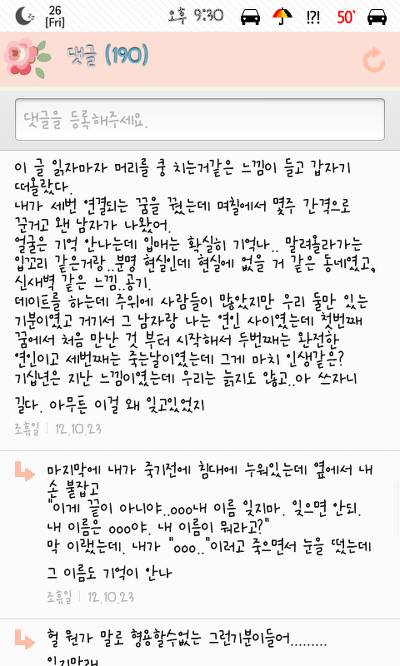 26
[Fri]
오후 9:30
!?!
50°
댓글 (190)
댓글을 등록해주세요.
이 글 읽자마자 머리를 쿵 치는거같은 느낌이 들고 갑자기
떠올랐다.
내가 세번 연결되는 꿈을 꿨는데 며칠에서 몇주 간격으로
꾼거고 왠 남자가 나왔어.
얼굴은 기억 안나는데 입매는 확실히 기억나.. 말려올라가는
입꼬리 같은거랑..분명 현실인데 현실에 없을 거 같은 동네였고,
신새벽 같은 느낌..공기.
데이트를 하는데 주위에 사람들이 많았지만 우리 둘만 있는
기분이였고 거기서 그 남자랑 나는 연인 사이였는데 첫번째
꿈에서 처음 만난 것 부터 시작해서 두번째는 완전한
연인이고 세번째는 죽는날이였는데 그게 마치 인생같은?
기십년은 지난 느낌이였는데 우리는 늙지도 않고..아 쓰자니
길다. 아무튼 이걸 왜 잊고있었지
조휴일 | 12.10.23
마지막에 내가 죽기전에 침대에 누워있는데 옆에서 내
손 붙잡고
"이게 끝이 아니야..ooo내 이름 잊지마. 잊으면 안되.
내 이름은 ooo야. 내 이름이 뭐라고?"
막 이랬는데. 내가 "ooo.."이러고 죽으면서 눈을 떴는데
그 이름도 기억이 안나
조휴일 | 12.10.23
헐 뭔가 말로 형용할수없는 그런기분이들어.........
잊지마래